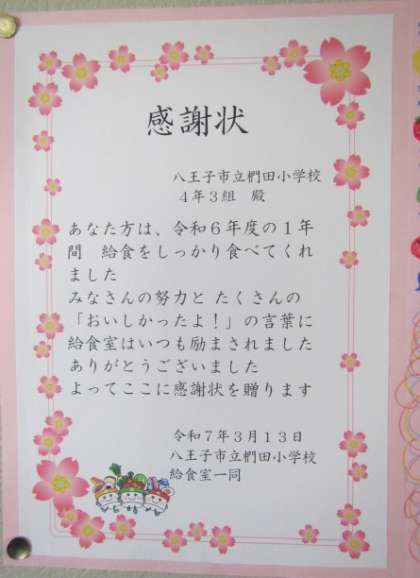 感謝状
八王子市立椚田小学校
４年３組　殿
あなた方は、令和６年度の１年
間　給食をしっかり食べてくれ
ました
みなさんの努力と たくさんの
「おいしかったよ！」の言葉に
給食室はいつも励まされました
ありがとうございました
よってここに感謝状を贈ります
令和７年３月１３日
八王子市立椚田小学校
給食室一同